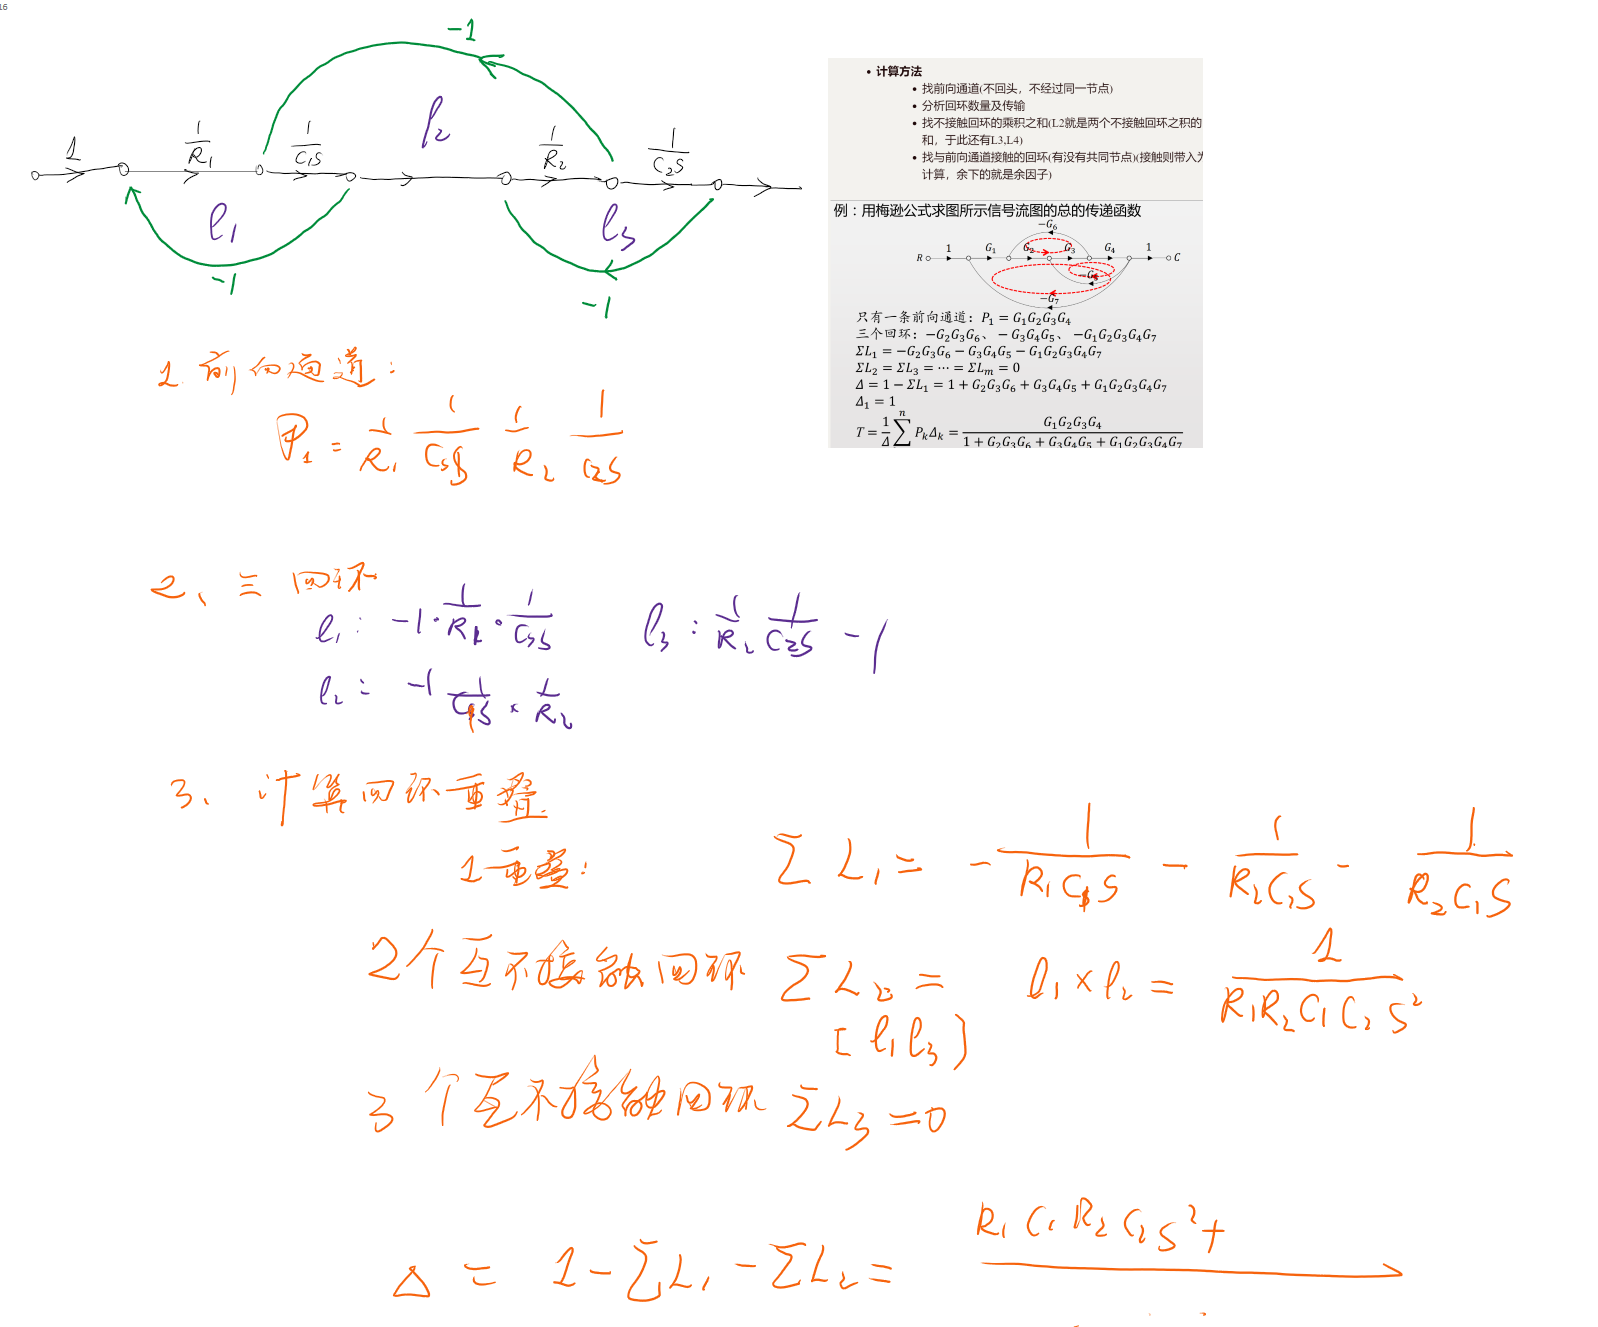 16
-1
l₂
1 1/R₁ 1/C₁S 1/R₂ 1/C₂S
l₁ l₃
-1 -1
• 计算方法
• 找前向通道(不回头，不经过同一节点)
• 分析回环数量及传输
• 找不接触回环的乘积之和(L2就是两个不接触回环之积的
和，于此还有L3,L4)
• 找与前向通道接触的回环(有没有共同节点)(接触则带入为
计算，余下的就是余因子)
例：用梅逊公式求图所示信号流图的总的传递函数
−G₆
R 1 G₁ G₂ G₃ G₄ 1 C
−G₅
−G₇
只有一条前向通道：P₁ = G₁G₂G₃G₄
三个回环：−G₂G₃G₆、 − G₃G₄G₅、 −G₁G₂G₃G₄G₇
ΣL₁ = −G₂G₃G₆ − G₃G₄G₅ − G₁G₂G₃G₄G₇
ΣL₂ = ΣL₃ = ⋯ = ΣLₘ = 0
Δ = 1 − ΣL₁ = 1 + G₂G₃G₆ + G₃G₄G₅ + G₁G₂G₃G₄G₇
Δ₁ = 1
T = 1/Δ ∑ⁿ PₖΔₖ = G₁G₂G₃G₄ / 1 + G₂G₃G₆ + G₃G₄G₅ + G₁G₂G₃G₄G₇
1. 前向通道：
P₁ = 1/R₁ 1/C₁S 1/R₂ 1/C₂S
2、三 回环
l₁: -1·1/R₁·1/C₁S l₃: 1/R₂ 1/C₂S -1
l₂: -1 1/C₁S × 1/R₂
3、计算回环重叠
1重叠: ∑L₁ = -1/R₁C₁S - 1/R₂C₂S - 1/R₂C₁S
2个互不接触回环 ∑L₂ = l₁×l₂ = 1/R₁R₂C₁C₂S²
[l₁l₃]
3个互不接触回环 ∑L₃=0
Δ = 1-∑L₁-∑L₂= R₁C₁R₂C₂S²+